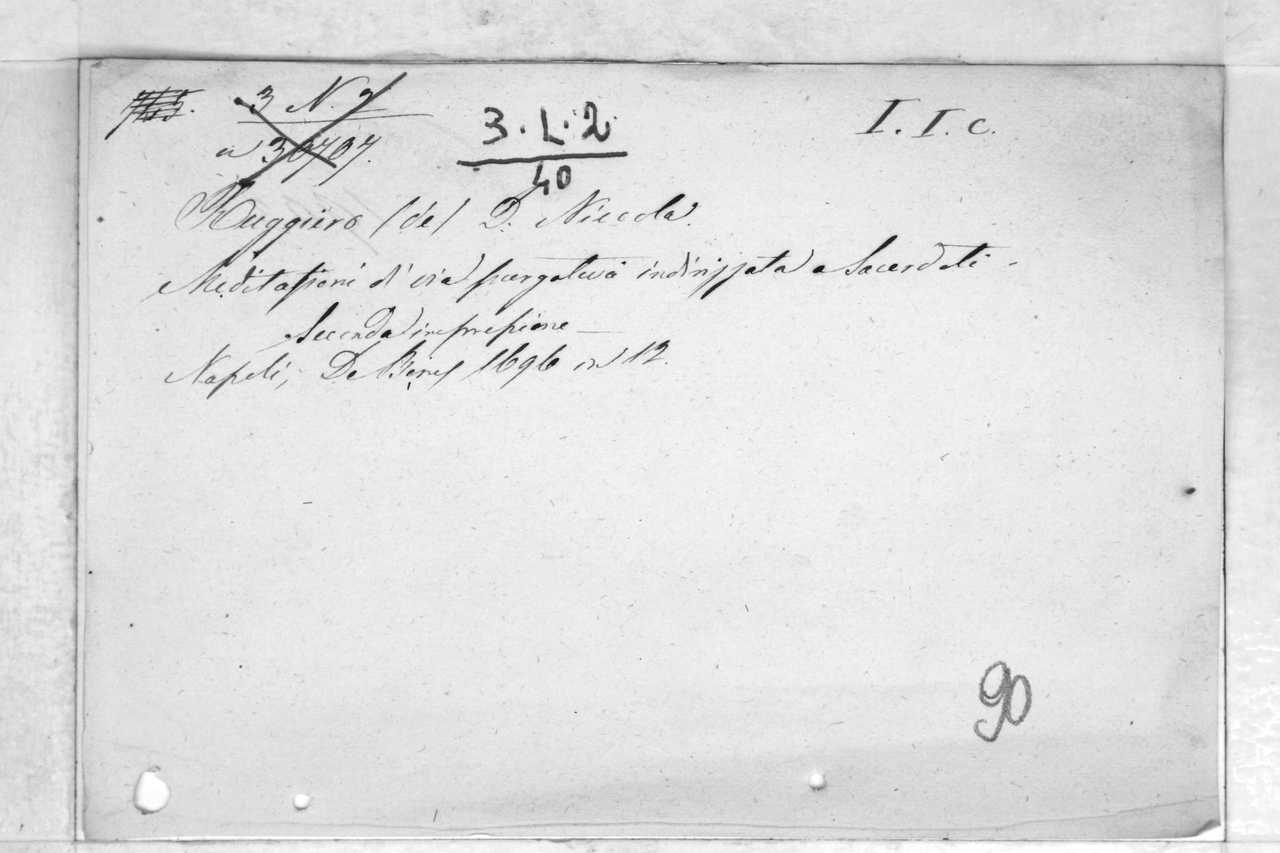 3 N. 7
3.L.2
I. I. c.
40
Ruggiero (de) D. Niccola
Meditassioni di via purgativa indirizzata a Sacerdoti -
Seconda impressione —
Napoli, De Bonis 1696 in 12.
90